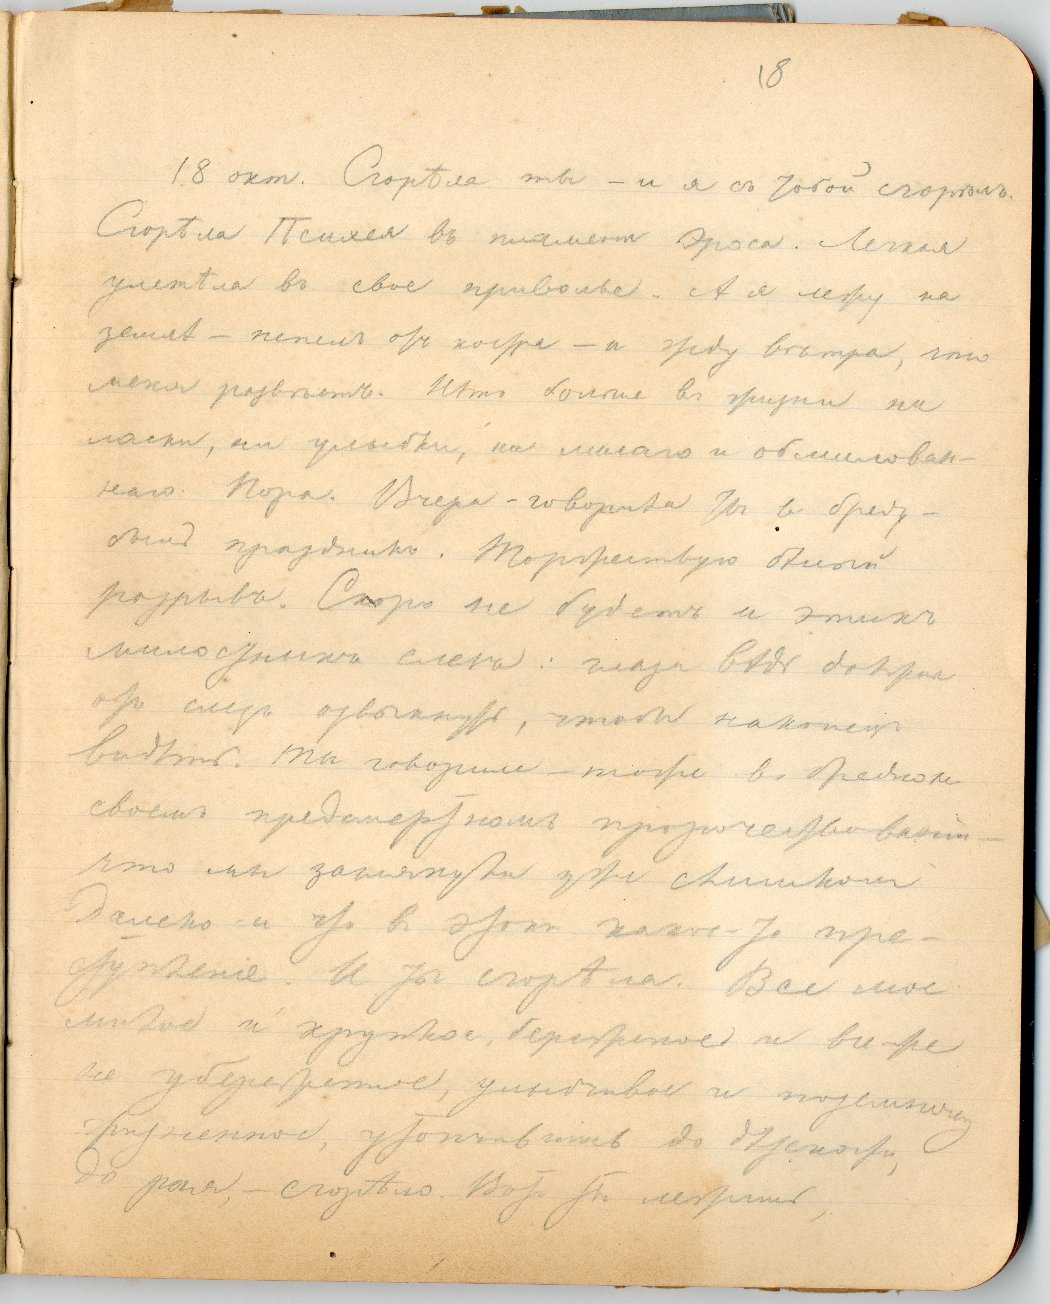 18
18 окт. Сгорѣла ты – и я съ тобой сгорѣлъ.
Сгорѣла Психея въ пламени Эроса. Легкая
улетѣла въ свое приволье. А я лежу на
землѣ – пепелъ отъ костра – и жду вѣтра, что
меня развѣетъ. Нѣтъ больше въ жизни ни
ласки, ни улыбки, ни милаго и обмилован-
наго. Пора. Вчера – говорила ты в бреду –
былъ праздникъ. Торжествую бѣлый
разрывъ. Скоро не будетъ и этихъ
милостныхъ слезъ: глаза вѣдь должны
отъ слезъ отвыкнуть, чтобы наконецъ
видѣть. Ты говорила – тоже въ бредномъ
своемъ предсмертномъ пророчествованіи –
что мы заглянули уже слишкомъ
далеко и что въ этомъ какое-то пре-
ступленіе. И ты сгорѣла. Все мое
милое и хрупкое, бережное и все же
не убереженное, улыбчивое и поземному
жизненное, утончившись до дѣтскости,
до рая, – сгорѣло. Вотъ ты лежишь,